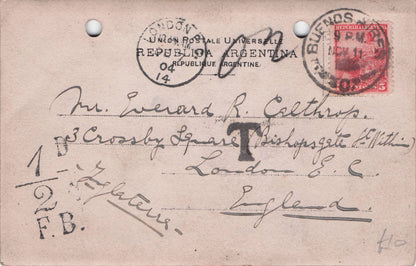 LONDON
04
14
UNION POSTALE UNIVERSELLE
REPUBLICA ARGENTINA
RÉPUBLIQUE ARGENTINE.
BUENOS AIRES
9 P.M.
NOV 11
5
Mr. Everard R. Calthrop.
3 Crossby Square, Bishopsgate St. Within)
T
London E. C.
England.
Inglaterra
1D
2
F.B.
£10